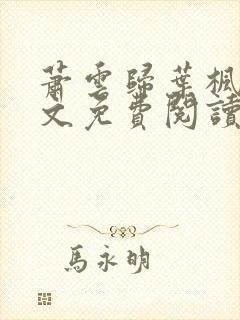 蕭雲歸葉楓
文免費閱讀
馬永明